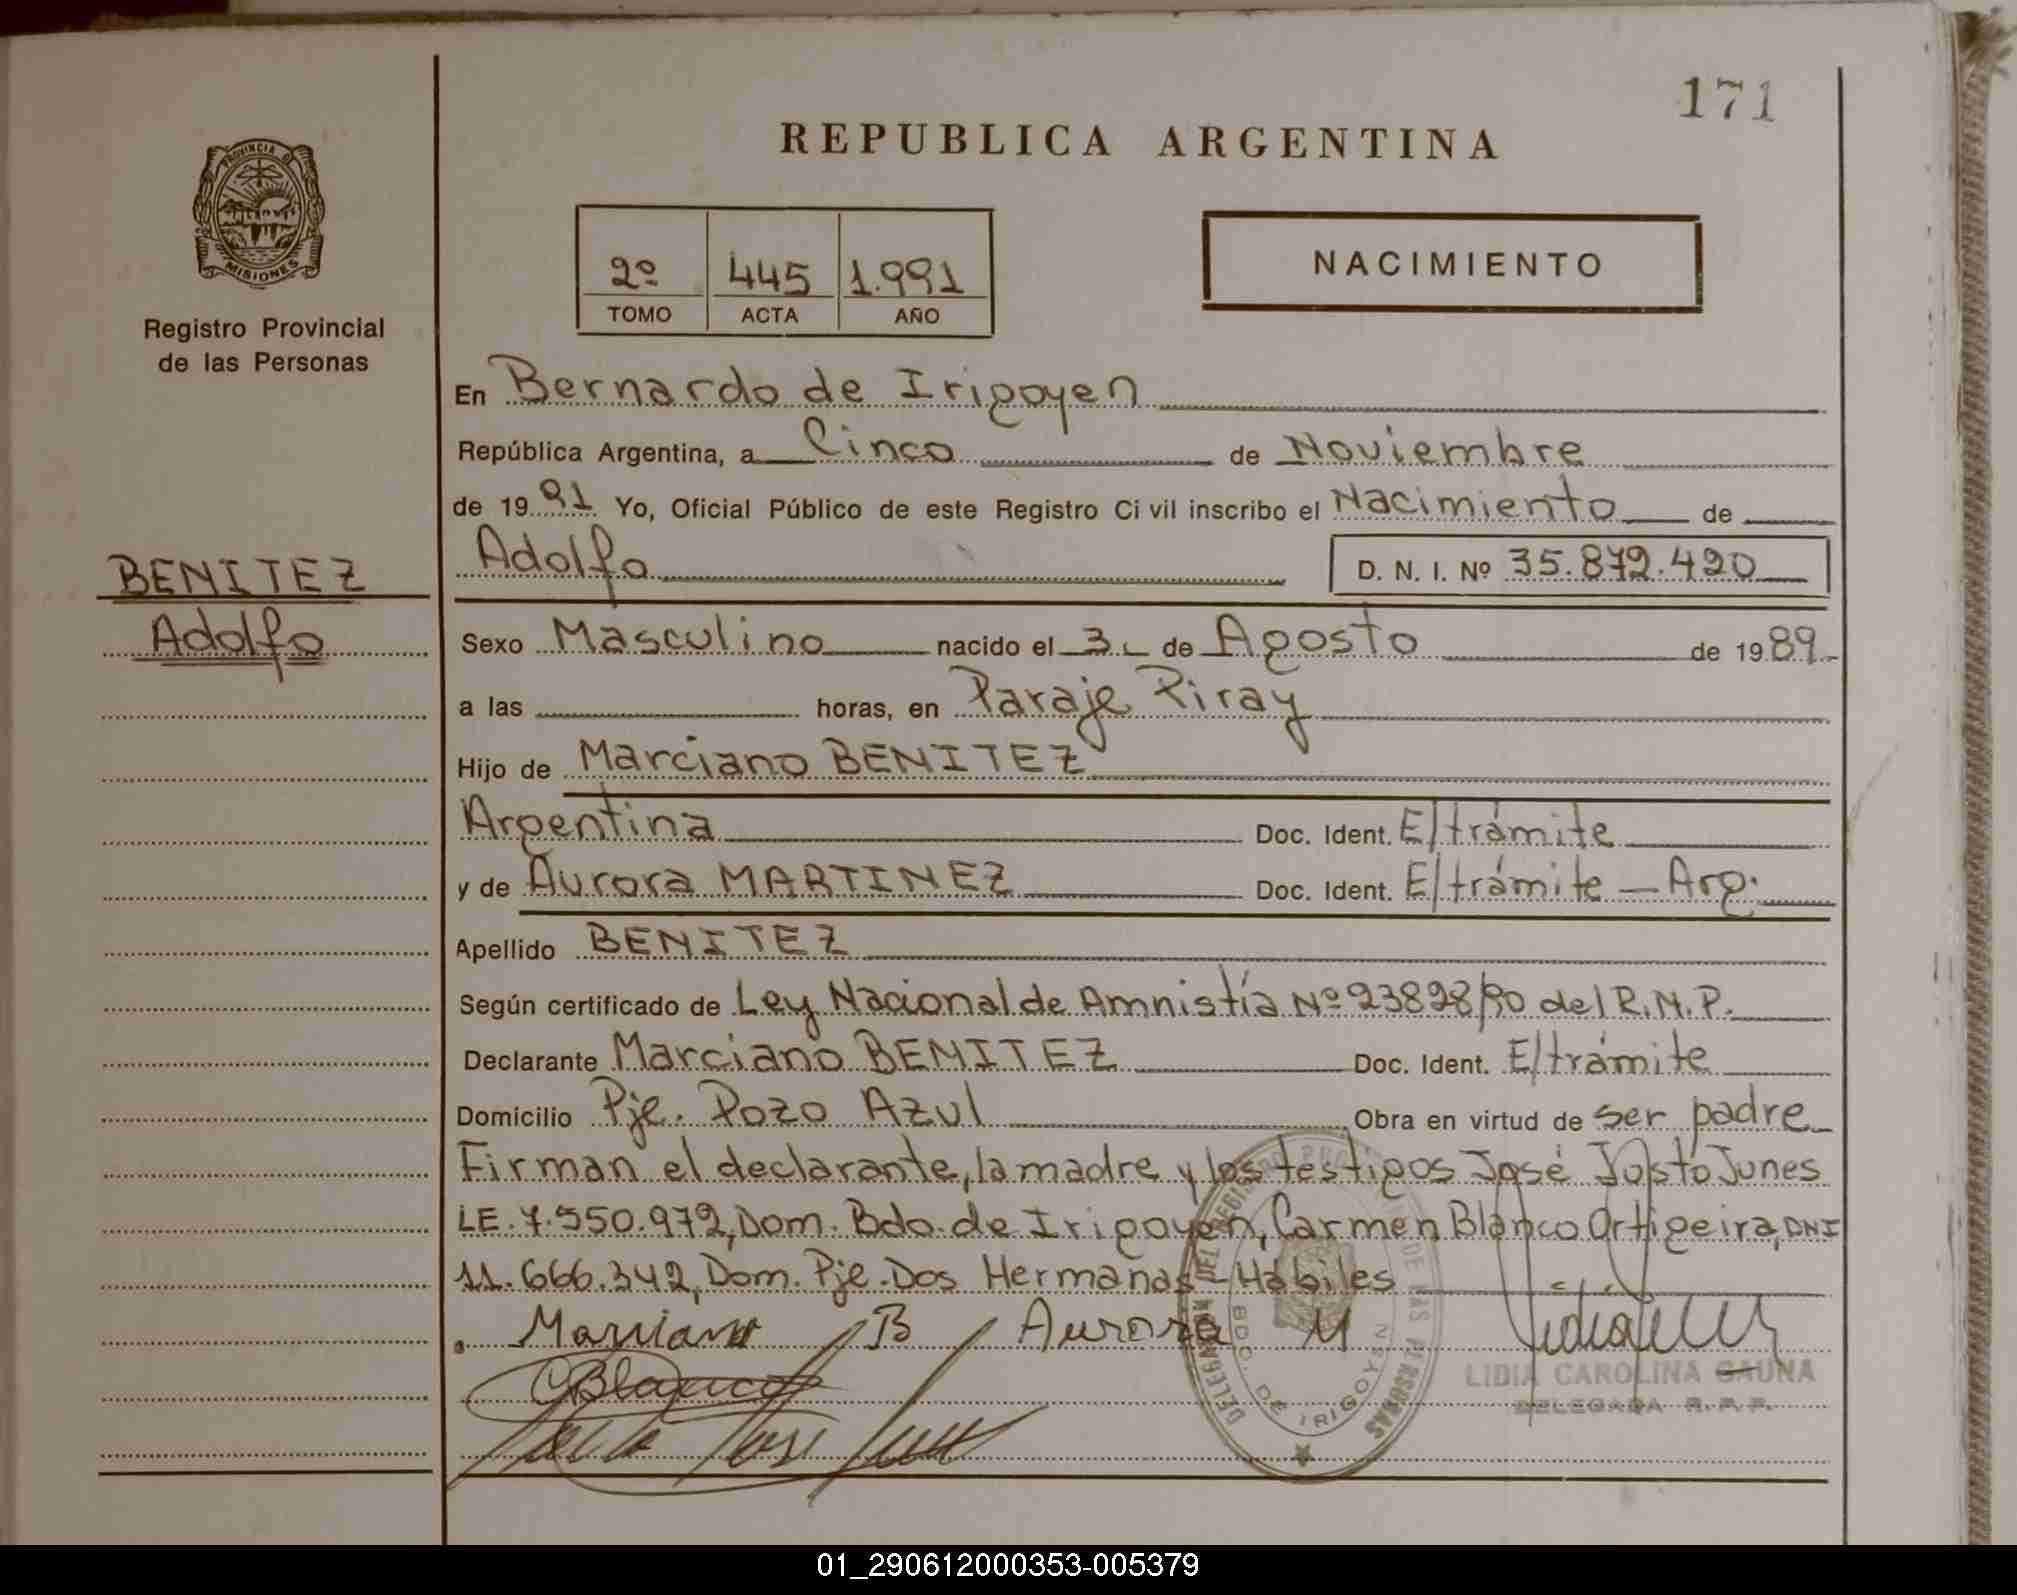 171
REPUBLICA ARGENTINA
PROVINCIA DE
MISIONES
Registro Provincial
de las Personas
2º 445 1.991
TOMO ACTA AÑO
NACIMIENTO
En Bernardo de Irigoyen
República Argentina, a Cinco de Noviembre
de 1991 Yo, Oficial Público de este Registro Ci vil inscribo el Nacimiento de
Adolfo D. N. I. Nº 35.872.420
BENITEZ
Adolfo
Sexo Masculino nacido el 3 de Agosto de 1989
a las horas, en Paraje Piray
Hijo de Marciano BENITEZ
Argentina Doc. Ident. E/trámite
y de Aurora MARTINEZ Doc. Ident. E/trámite - Arg.
Apellido BENITEZ
Según certificado de Ley Nacional de Amnistía Nº 23828/90 del R.N.P.
Declarante Marciano BENITEZ Doc. Ident. E/trámite
Domicilio Pje. Pozo Azul Obra en virtud de ser padre
Firman el declarante, la madre y los testigos José Justo Junes
LE. 7.550.972, Dom. Bdo. de Irigoyen, Carmen Blanco Ortigeira, DNI
11.666.342, Dom. Pje. Dos Hermanas - Hábiles
Marciano B Aurora M
CBlanco
DELEGACION DEL REGISTRO PROVINCIAL DE LAS PERSONAS
BDO. DE IRIGOYEN
LIDIA CAROLINA GAUNA
DELEGADA R. P. P.
01_290612000353-005379